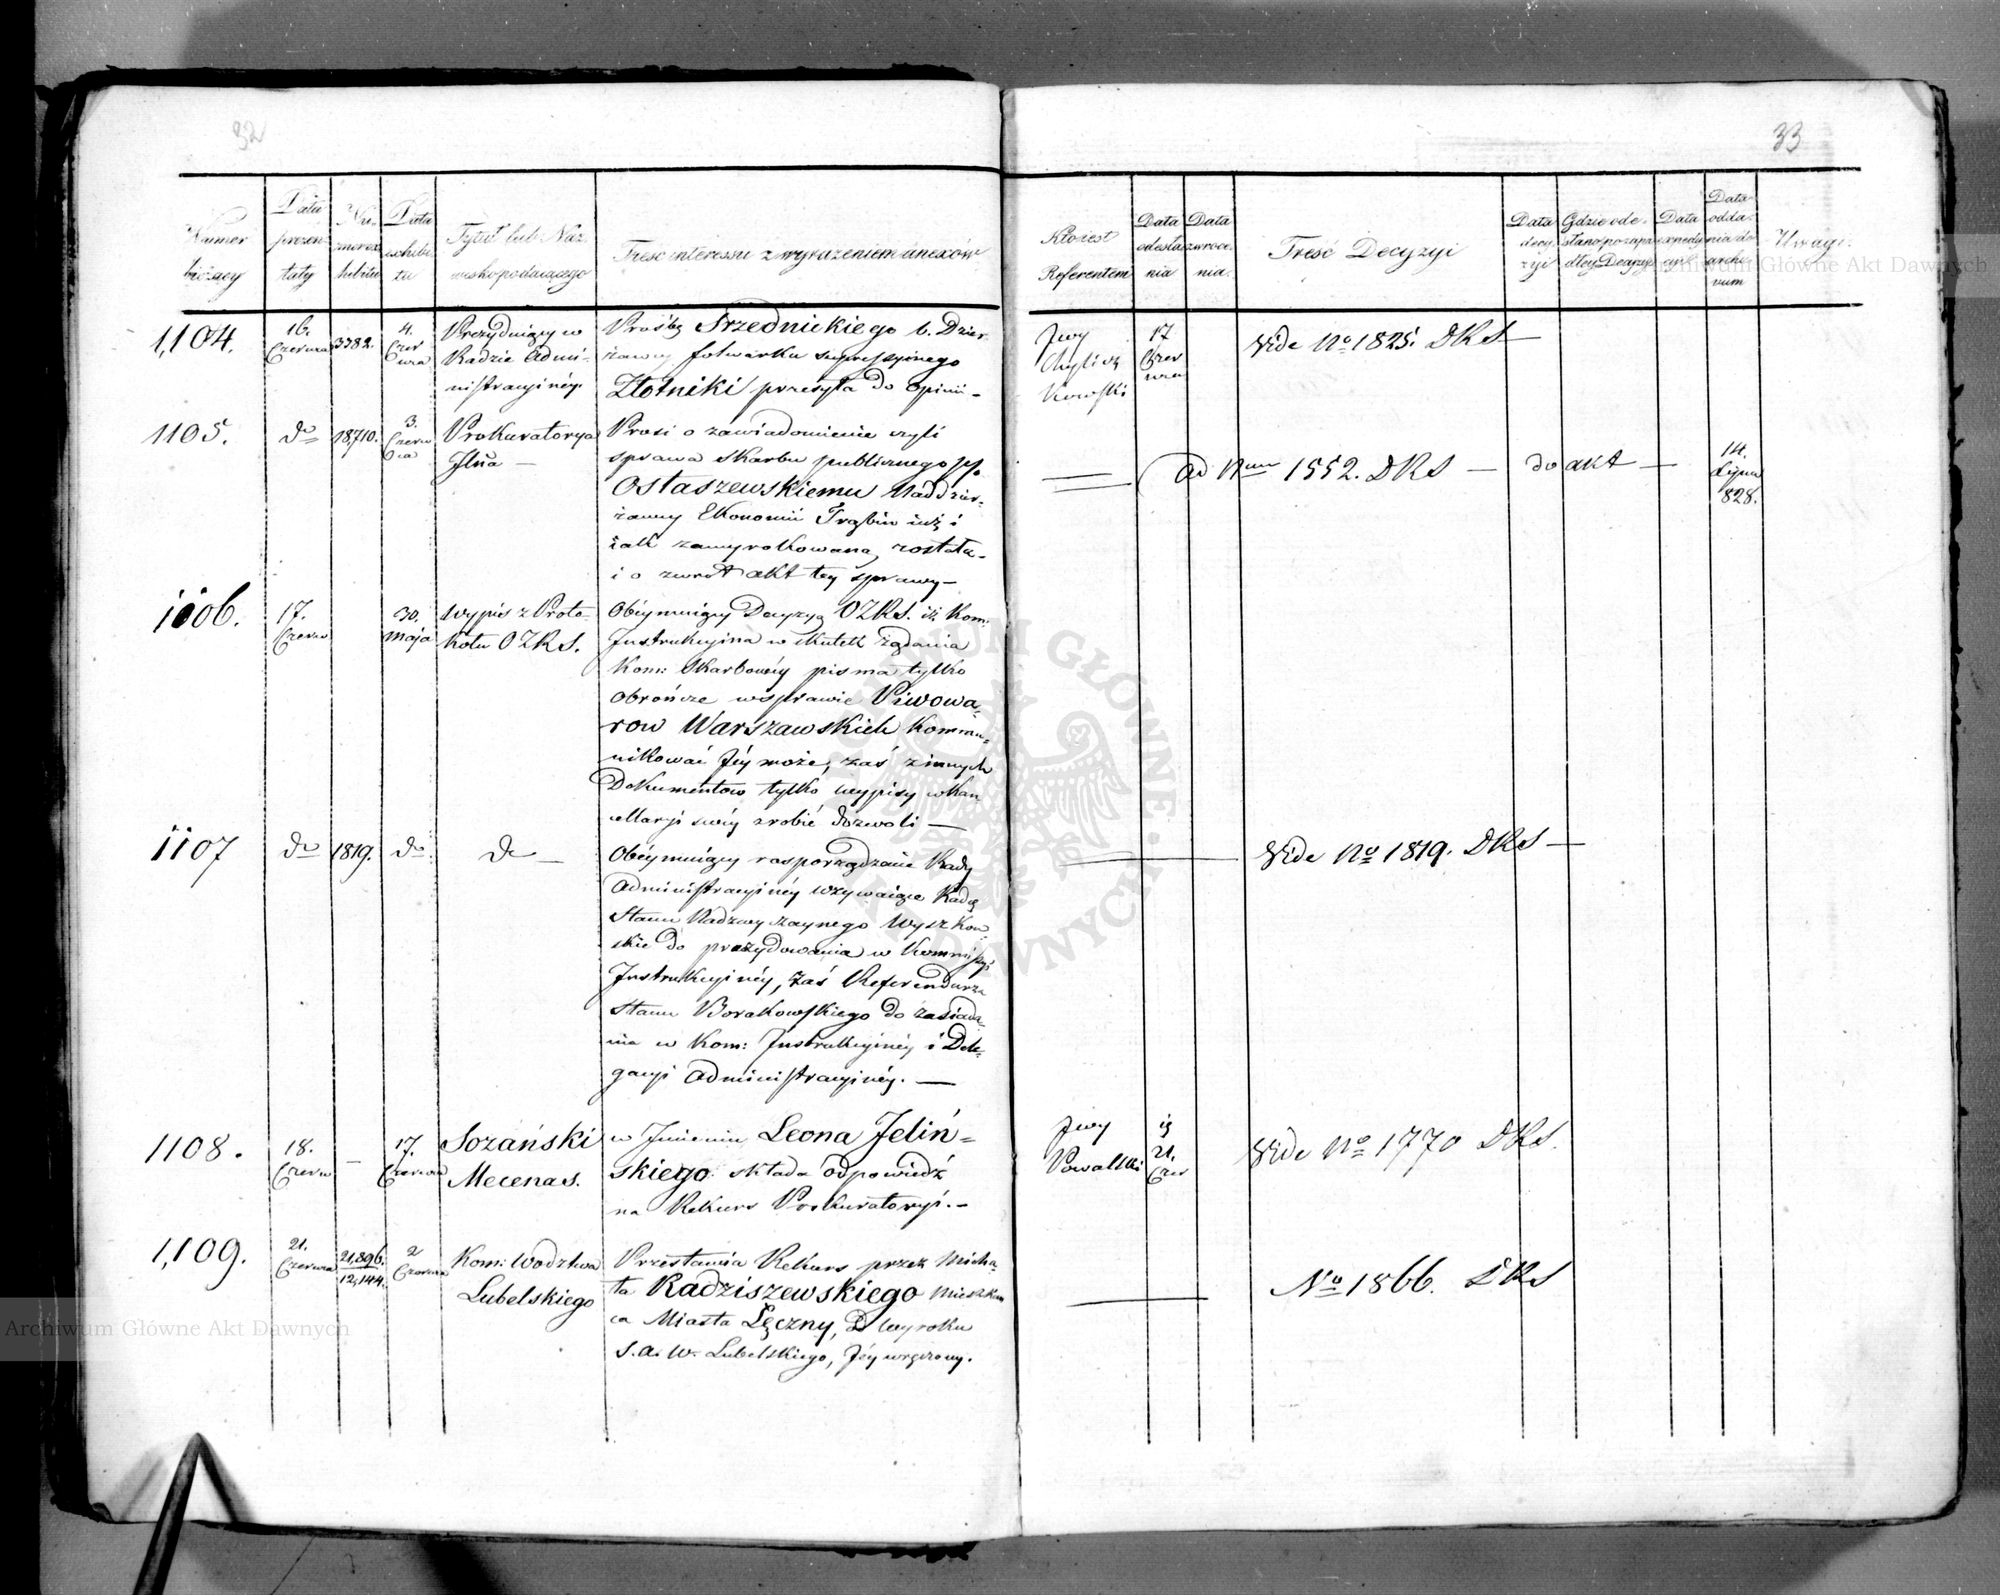 32
33
Numer bieżący
Data prezentaty
Numer exhibitu
Data exhibitu
Tytuł lub Nazwisko podaiącego
Treść interessu z wyrażeniem anexów
Kto iest Referentem
Data odesłania
Data zwrócenia
Treść Decyzyi
Data decyzyi
Gdzie odesłano po zapadłey Decyzyi
Data expedycyi
Data oddania do archivum
Uwagi
1,104.
16. Czerwca
3382.
4. Czerwca
Prezyduiący w
Radzie Admi-
nistracyinéy.
Prośbę Srzednickiego b. Dzier
żawcy folwarku supressyinego
Złotniki przesyła do opinii –
JWy
17 Czerwca
Vide No 1825. DKS –
1105.
do
18710.
3. Czerwca
Prokuratorya
Jlna —
Prosi o zawiadomienie czyli
sprawa Skarbu publicznego pko
Ostaszewskiemu Naddzier-
żawcy Ekonomii Trąbin iuż i
iak zawyrokowaną została –
i o zwrot akt tey sprawy –
ad Num 1552. DKS —
do akt —
14. Lipca 828.
1106.
17. Czerw
30. maja
Wypis z Proto-
kołu OZKS.
Obéymuiący Decyzyą OZKS. iż Kom:
Instrukcyina w skutek żądania
Kom: Skarbowéy pisma tylko
obrończe w sprawie Piwowa-
row Warszawskich kommu-
nikować Jéy może, zaś z innych
Dokumentow tylko wypisy w kan
cellaryi swéy zrobić dozwoli —
1107
do
1819.
do
do —
Obéymuiący rosporządzenie Rady
Administracyinéy wzywaiące Radcę
Stanu Nadzwyczaynego Wyszkow-
skie do prezydowania w Kommissyi
Instrukcyinéy, zaś Referendarza
Stanu Borakowskiego do zasiada-
nia w Kom: Instrukcyinéy i Dele-
gacyi Administracyinéy. —
Vide No 1819. DKS —
1108.
18. Czerw
—
17. Czerwca
Sozański
Mecenas.
w Jmieniu Leona Jeliń-
skiego składa odpowiedź
na Rekurs Prokuratoryi. –
JWy
Powalski
21. Czer
Vide No 1770 DKS.
1,109.
21. Czerwca
21,896.
12,144.
2 Czerwca
Kom: Wodztwa
Lubelskiego
Przestawia Rekurs przez Micha-
ła Radziszewskiego mieszkań
ca Miasta Łęczny, z Wyroku
S. a. W. Lubelskiego, Jéy wręczony.
No 1866. DKS
Archiwum Główne Akt Dawnych
Archiwum Główne Akt Dawnych
ARCHIWUM GŁÓWNE AKT DAWNYCH